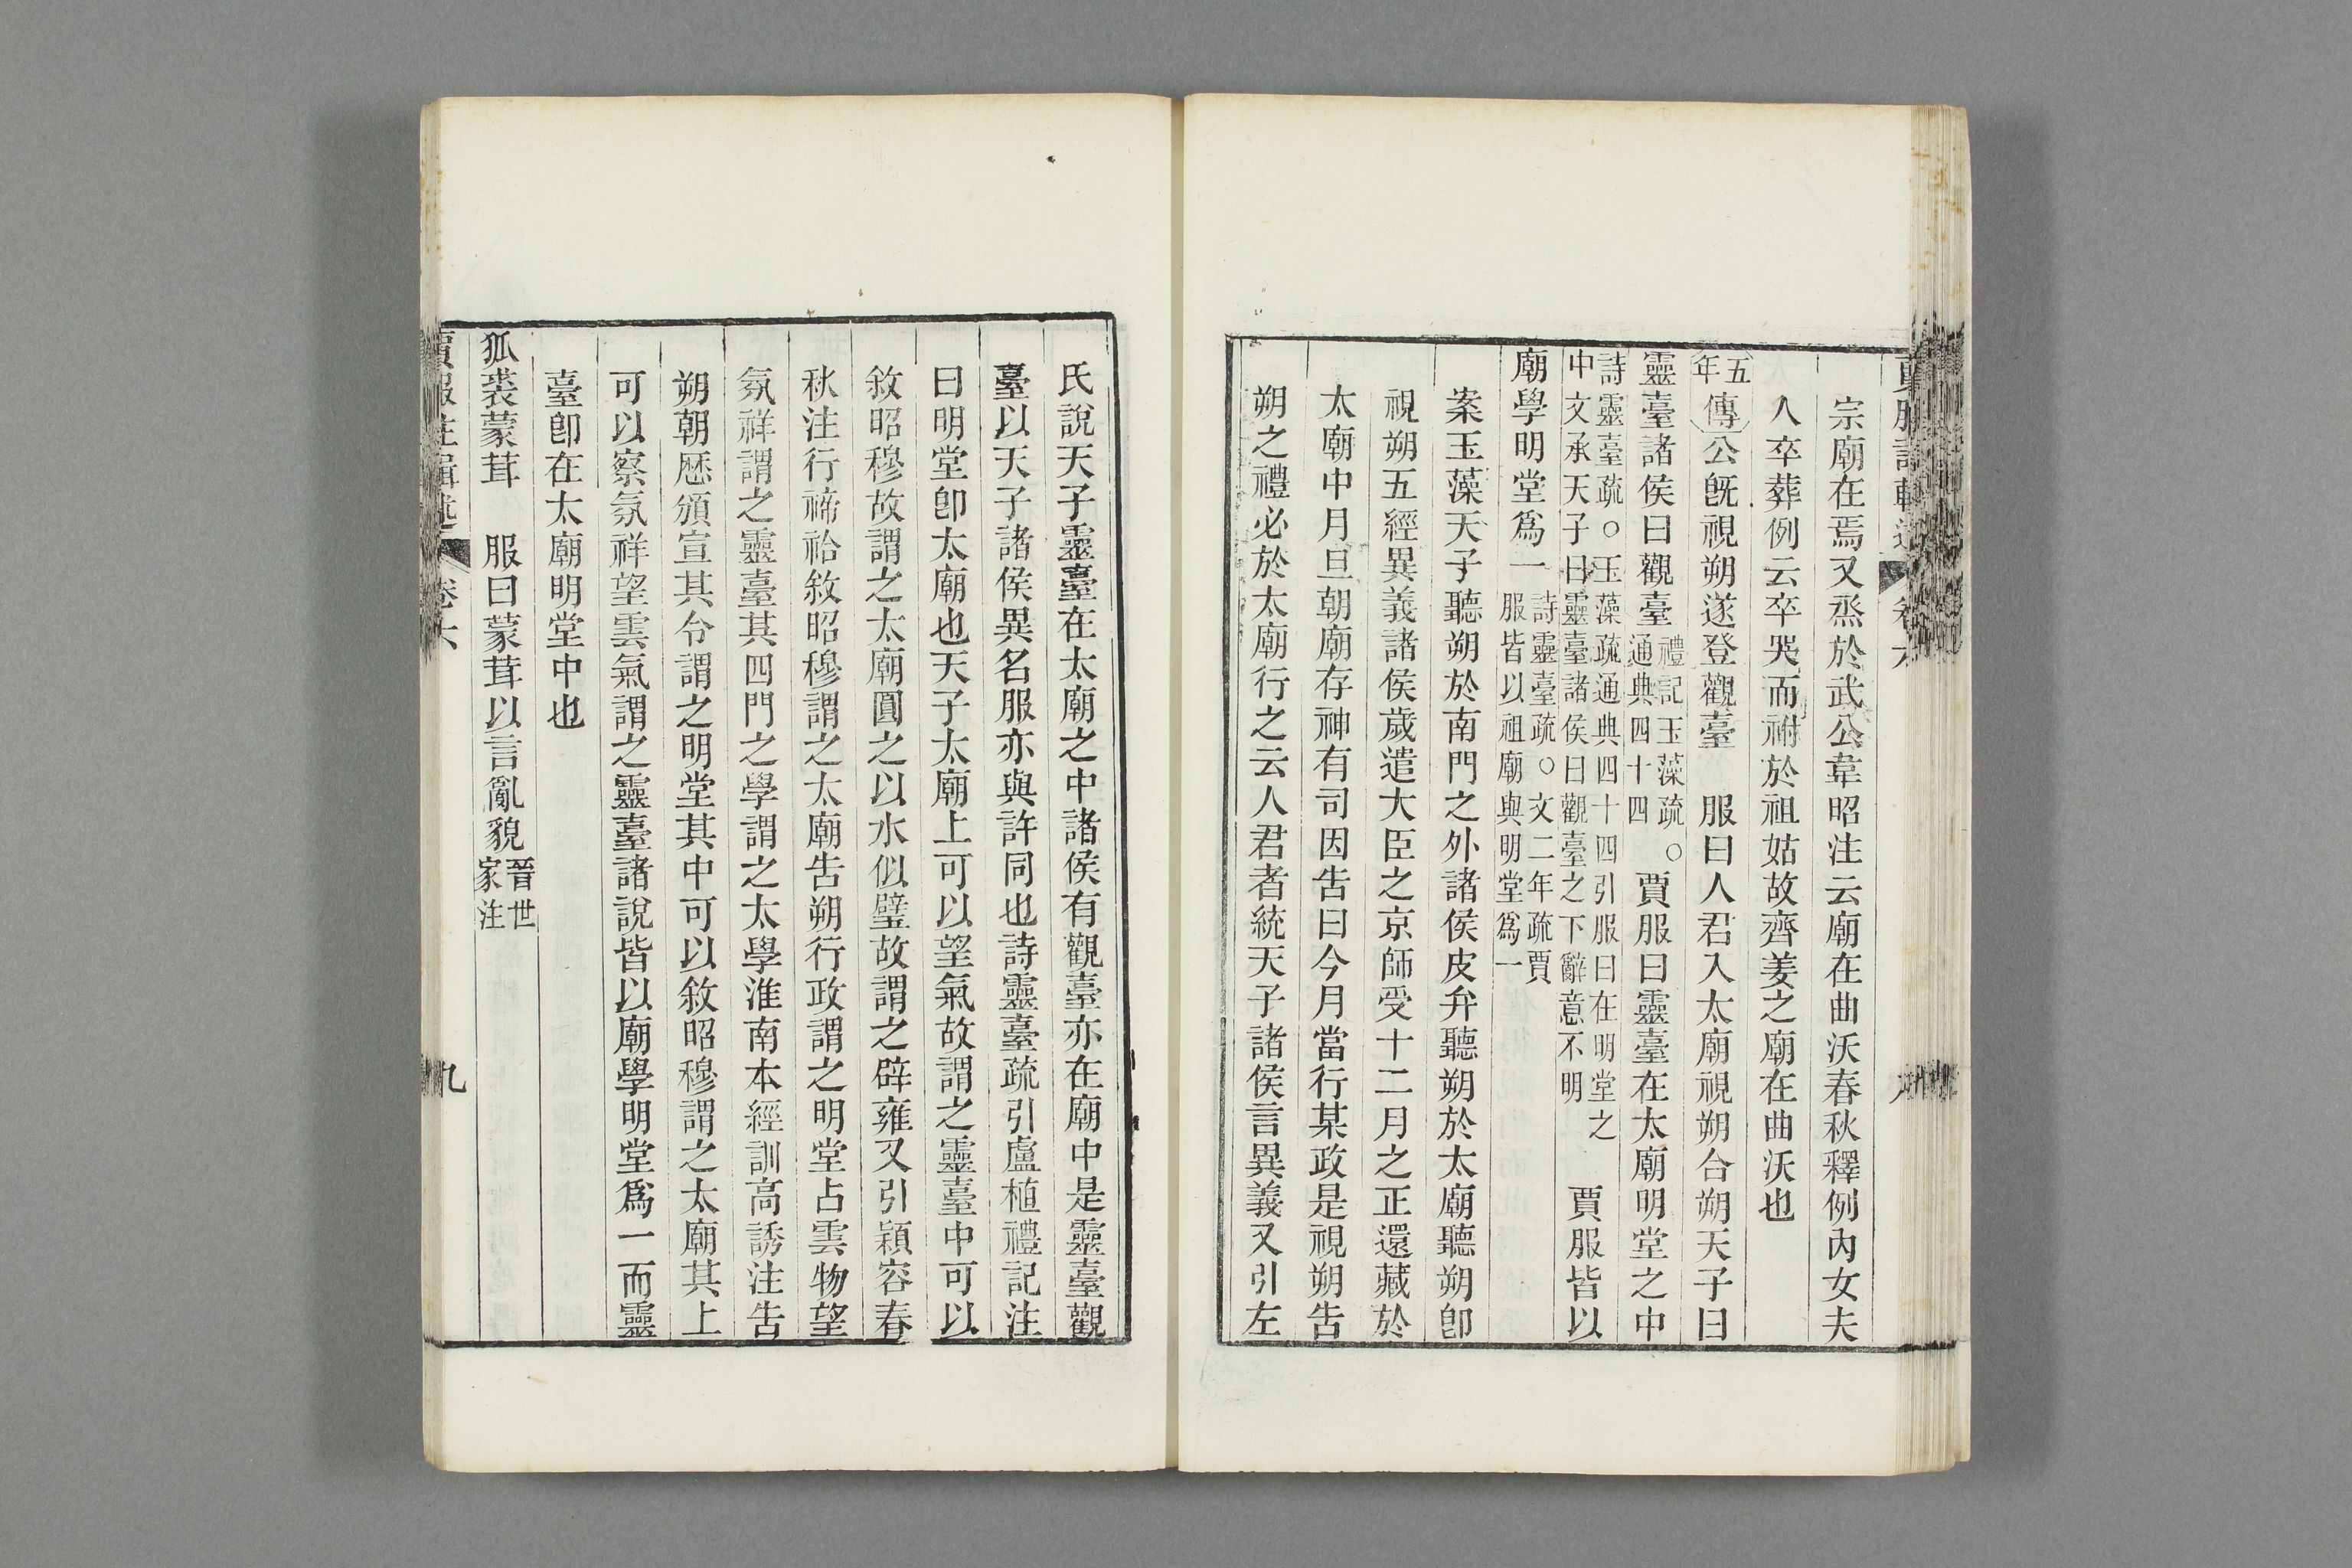 宗廟在焉又烝於武公韋昭注云廟在曲沃春秋釋例內女夫
人卒葬例云卒哭而祔於祖姑故齊姜之廟在曲沃也
五年傳公旣視朔遂登觀臺　服曰人君入太廟視朔合朔天子曰
靈臺諸侯曰觀臺禮記玉藻疏○通典四十四　賈服曰靈臺在太廟明堂之中
詩靈臺疏○玉藻疏通典四十四引服曰在明堂之中文承天子曰靈臺諸侯曰觀臺之下辭意不明　賈服皆以
廟學明堂爲一詩靈臺疏○文二年疏賈服皆以祖廟與明堂爲一
案玉藻天子聽朔於南門之外諸侯皮弁聽朔於太廟聽朔卽
視朔五經異義諸侯歲遣大臣之京師受十二月之正還藏於
太廟中月旦朝廟存神有司因告曰今月當行某政是視朔告
朔之禮必於太廟行之云人君者統天子諸侯言異義又引左
氏說天子靈臺在太廟之中諸侯有觀臺亦在廟中是靈臺觀
臺以天子諸侯異名服亦與許同也詩靈臺疏引盧植禮記注
曰明堂卽太廟也天子太廟上可以望氣故謂之靈臺中可以
敘昭穆故謂之太廟圓之以水似璧故謂之辟雍又引穎容春
秋注行禘祫敘昭穆謂之太廟告朔行政謂之明堂占雲物望
氛祥謂之靈臺其四門之學謂之太學淮南本經訓高誘注告
朔朝厯頒宣其令謂之明堂其中可以敘昭穆謂之太廟其上
可以察氛祥望雲氣謂之靈臺諸說皆以廟學明堂爲一而靈
臺卽在太廟明堂中也
狐裘蒙茸　服曰蒙茸以言亂貌晉世家注
卷六
九